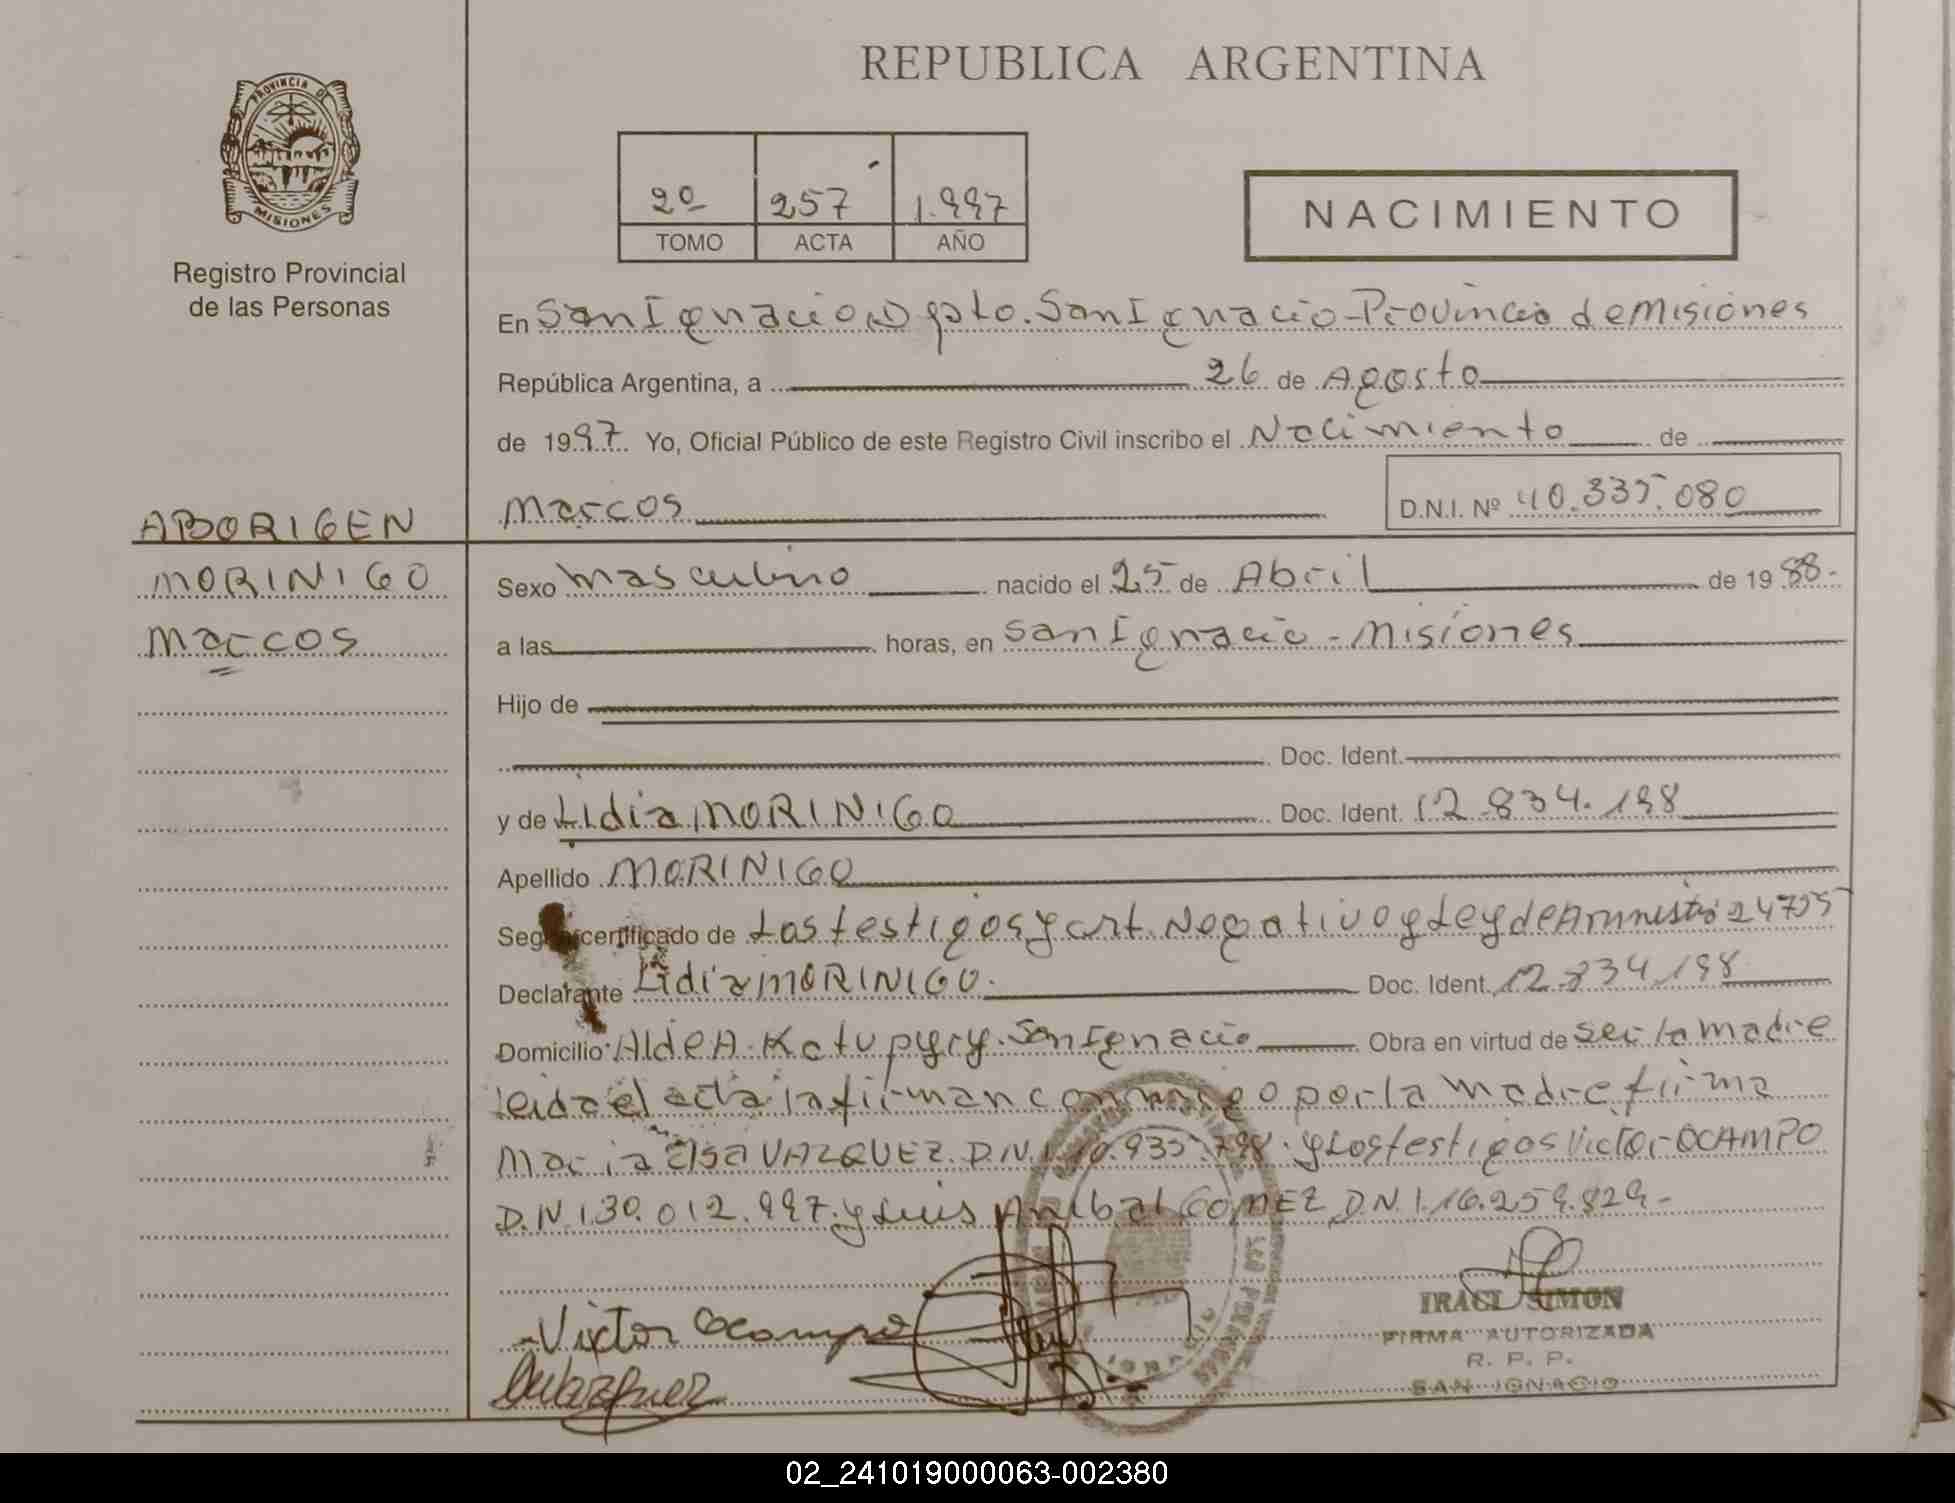 REPUBLICA ARGENTINA
PROVINCIA DE MISIONES
Registro Provincial
de las Personas
2º 257 1.997
TOMO ACTA AÑO
NACIMIENTO
En San Ignacio, Dpto. San Ignacio - Provincia de Misiones
República Argentina, a 26 de Agosto
de 1997. Yo, Oficial Público de este Registro Civil inscribo el Nacimiento de
Marcos D.N.I. Nº 40.335.080
ABORIGEN
MORINIGO
Marcos
Sexo masculino nacido el 25 de Abril de 1988.-
a las horas, en San Ignacio - Misiones
Hijo de
Doc. Ident.
y de Lidia MORINIGO Doc. Ident. 12.834.198
Apellido MORINIGO
Según certificado de Los testigos y cert. Negativo y Ley de Amnistía 24755
Declarante Lidia MORINIGO. Doc. Ident. 12.834.198
Domicilio Aldea Katupyry. San Ignacio Obra en virtud de ser la madre
leida el acta la firman conmigo por la madre firma
Maria Elsa VAZQUEZ. D.N.I. 10.935.798. y Los testigos Victor OCAMPO
D.N.I 30.012.997. y Luis Anibal GOMEZ D.N.I. 16.259.829-
Victor Ocampo
IRACI SIMON
FIRMA AUTORIZADA
R. P. P.
SAN IGNACIO
02_241019000063-002380